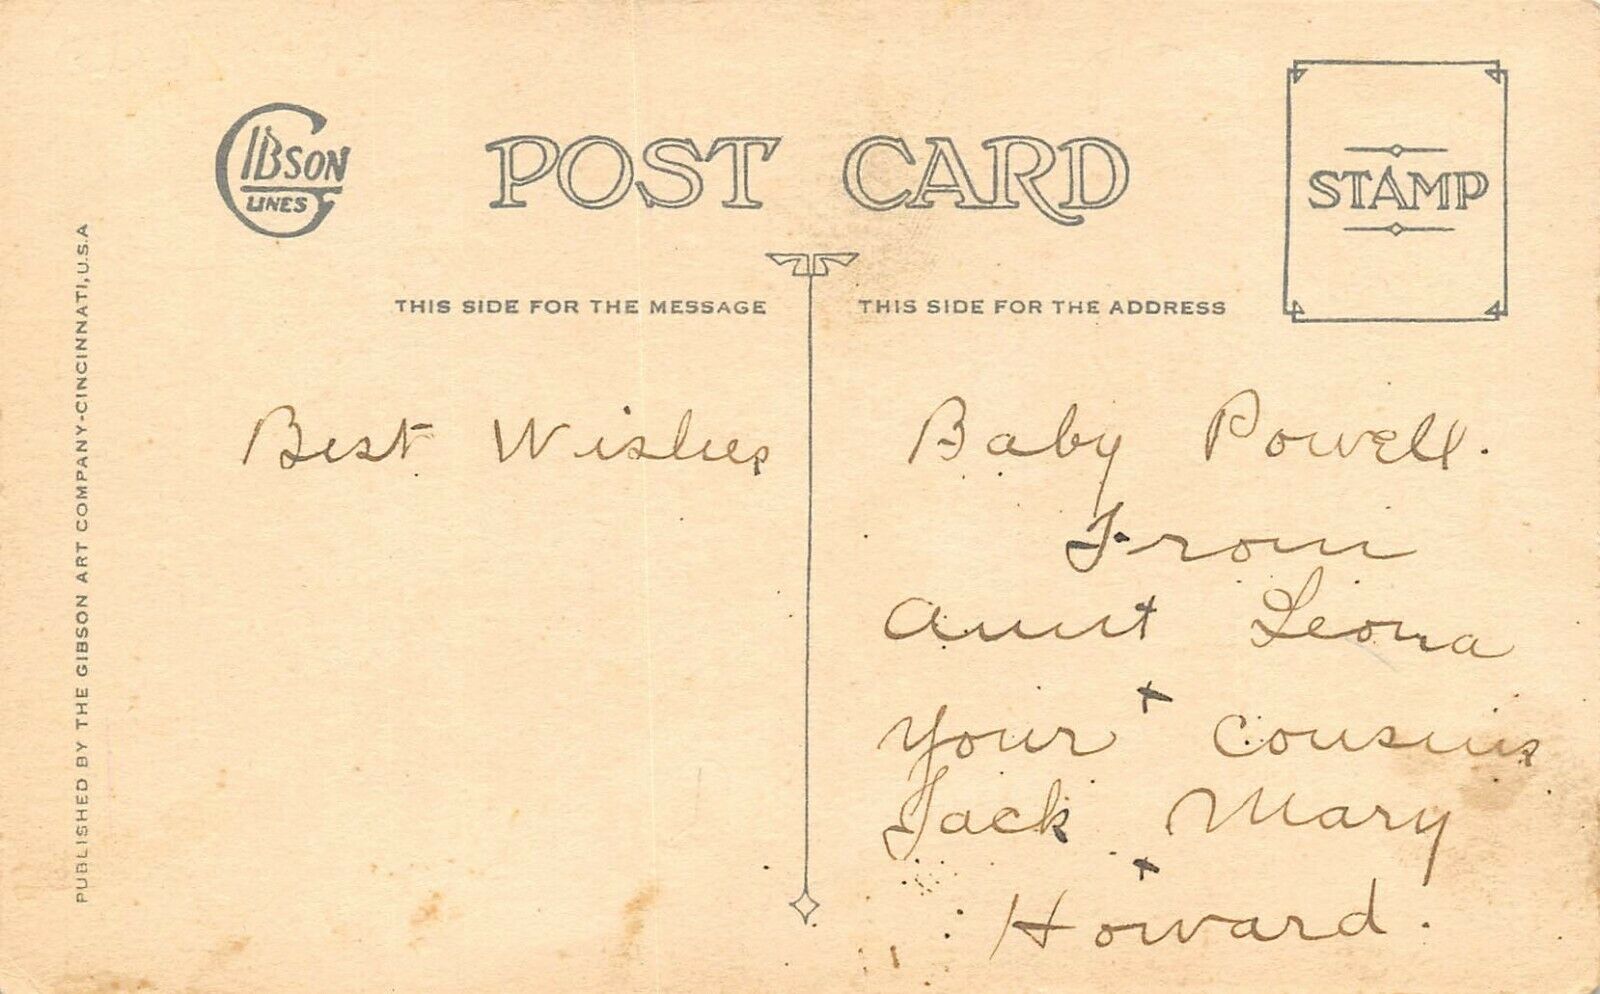 GIBSON
LINES
POST CARD
STAMP
THIS SIDE FOR THE MESSAGE
THIS SIDE FOR THE ADDRESS
PUBLISHED BY THE GIBSON ART COMPANY-CINCINNATI, U.S.A
Best Wishes
Baby Powell.
From
Aunt Leona
+
Your Cousins
Jack Mary
+
Howard.